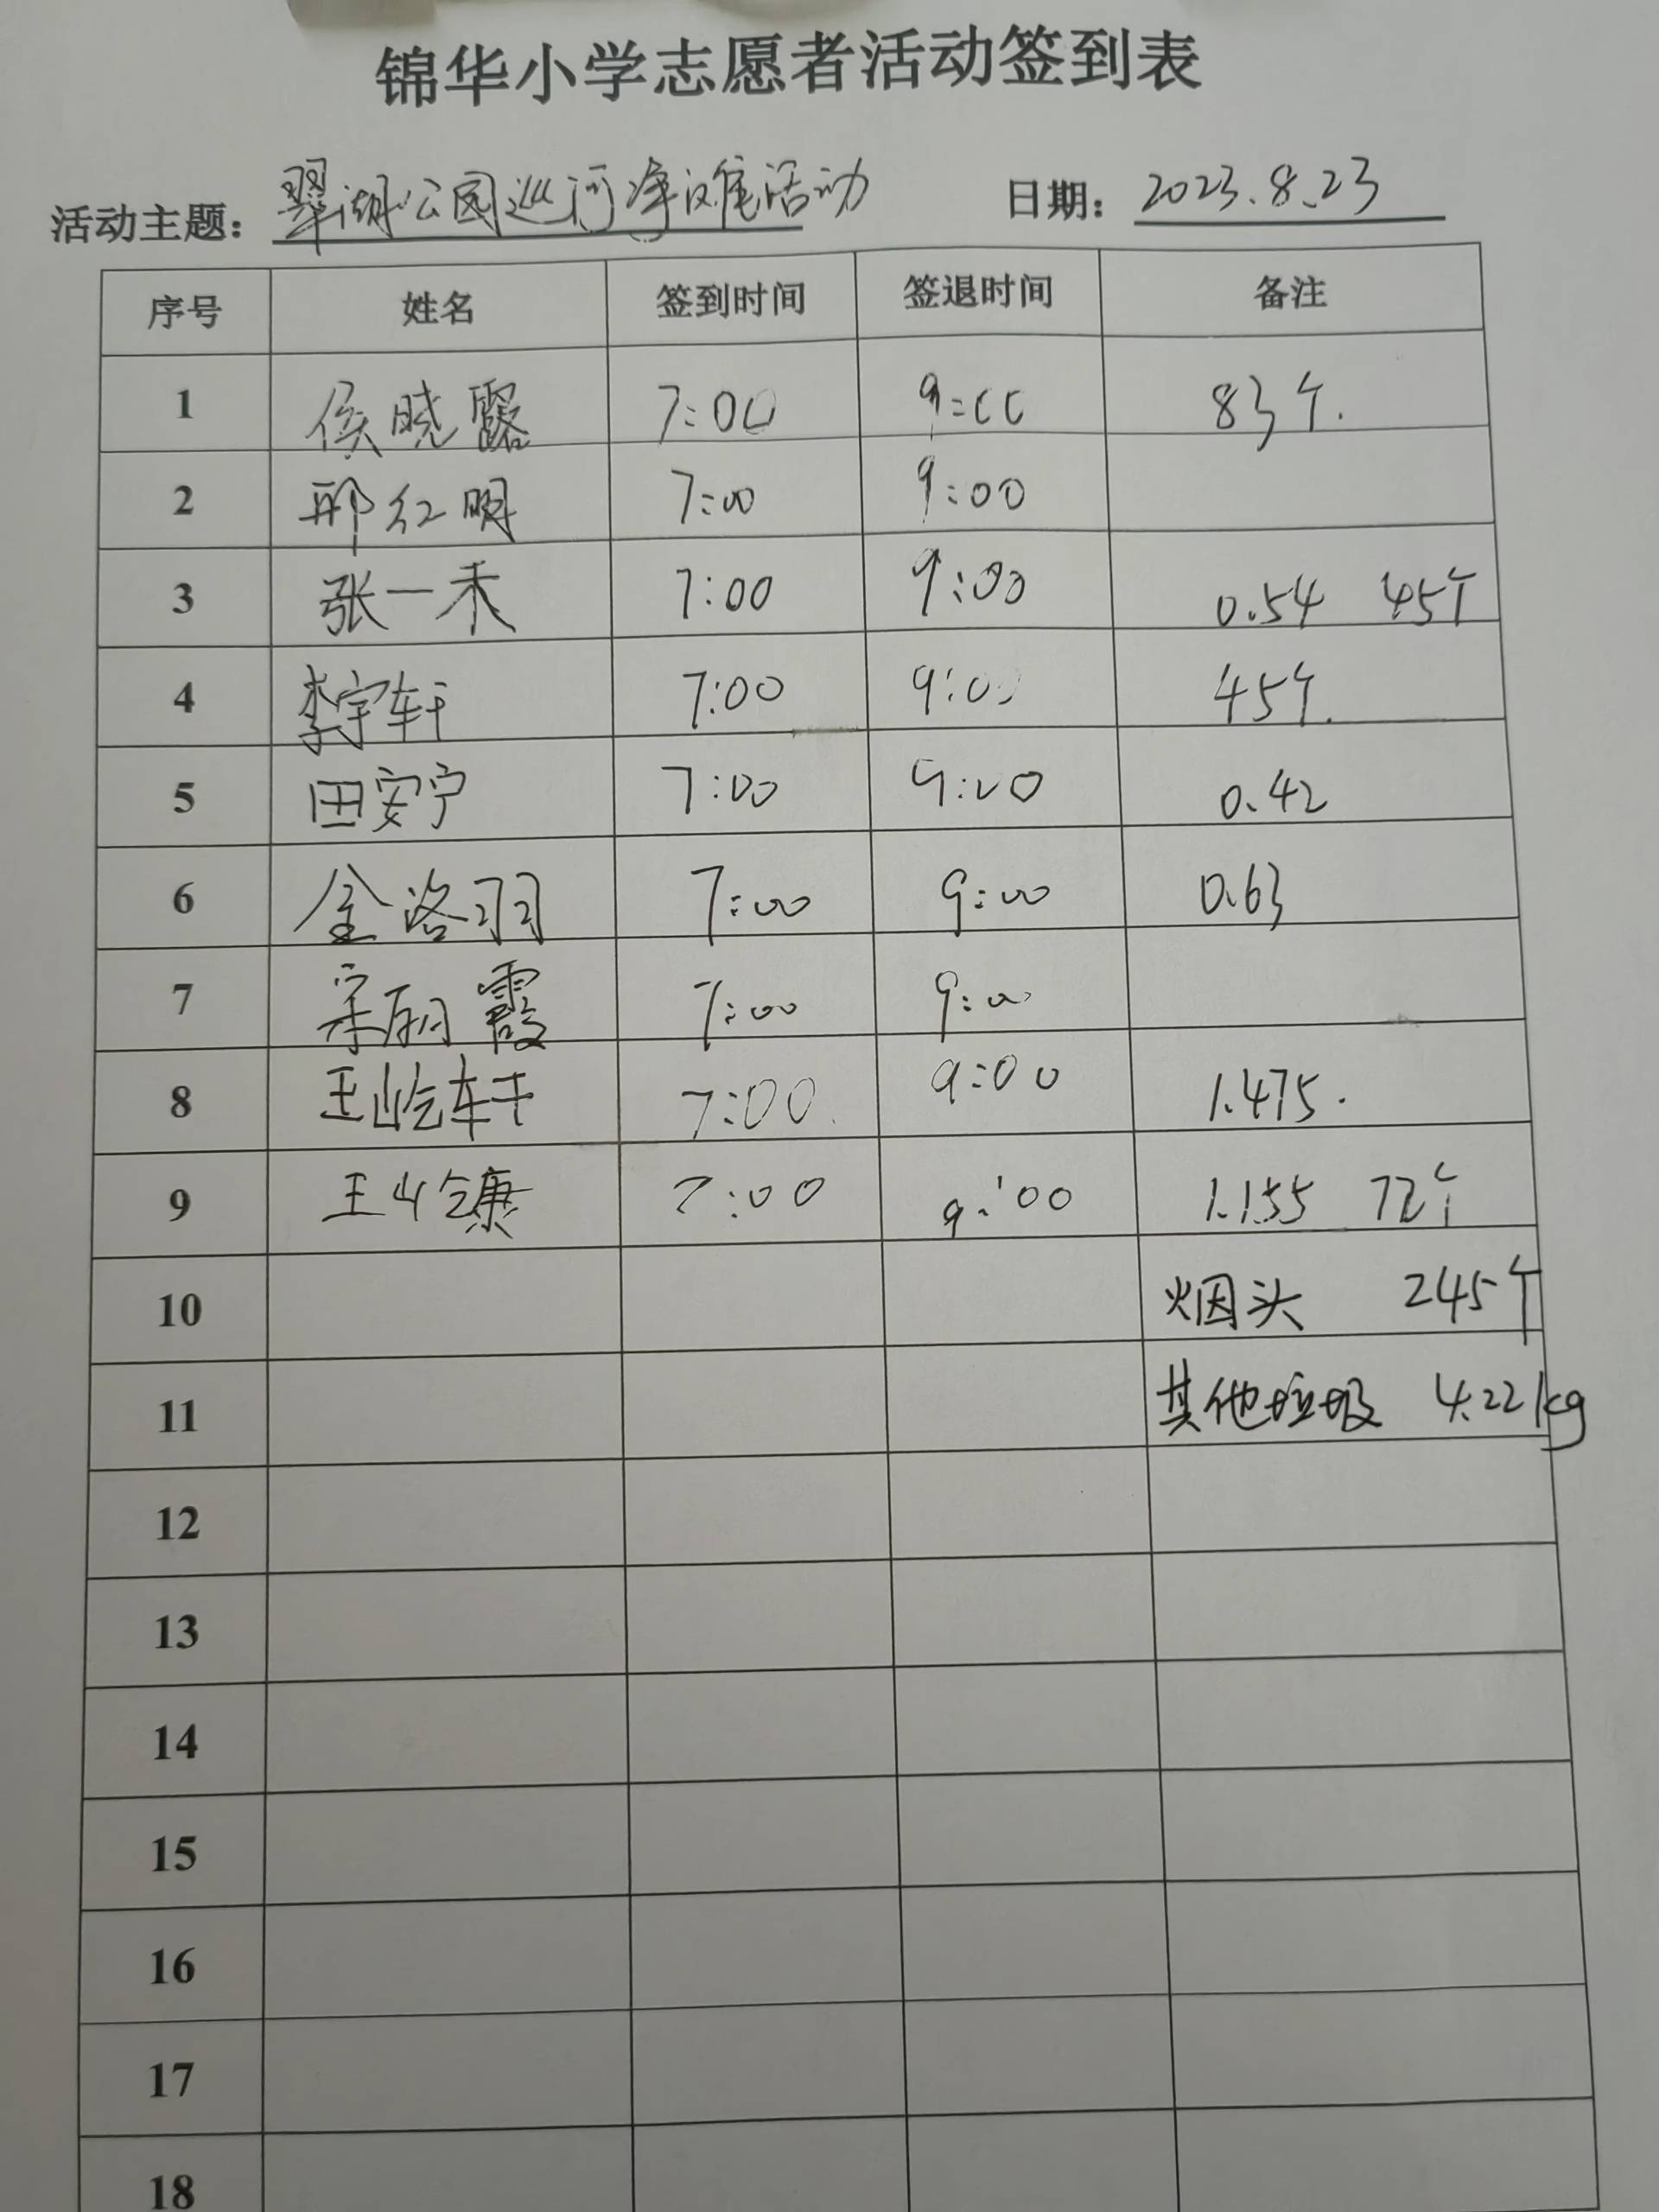 锦华小学志愿者活动签到表
活动主题：翠湖公园巡河净滩活动 日期：2023.8.23
序号 姓名 签到时间 签退时间 备注
1 侯晓露 7:00 9:00 83个.
2 邢红明 7:00 9:00
3 张一禾 7:00 9:00 0.54 45个
4 李宇轩 7:00 9:00 45个.
5 田安宁 7:00 9:00 0.42
6 金洛羽 7:00 9:00 0.63
7 宋丽霞 7:00 9:00
8 王屹轩 7:00 9:00 1.475.
9 王屹康 7:00 9:00 1.155 72个
10 烟头 245个
11 其他垃圾 4.22kg
12
13
14
15
16
17
18